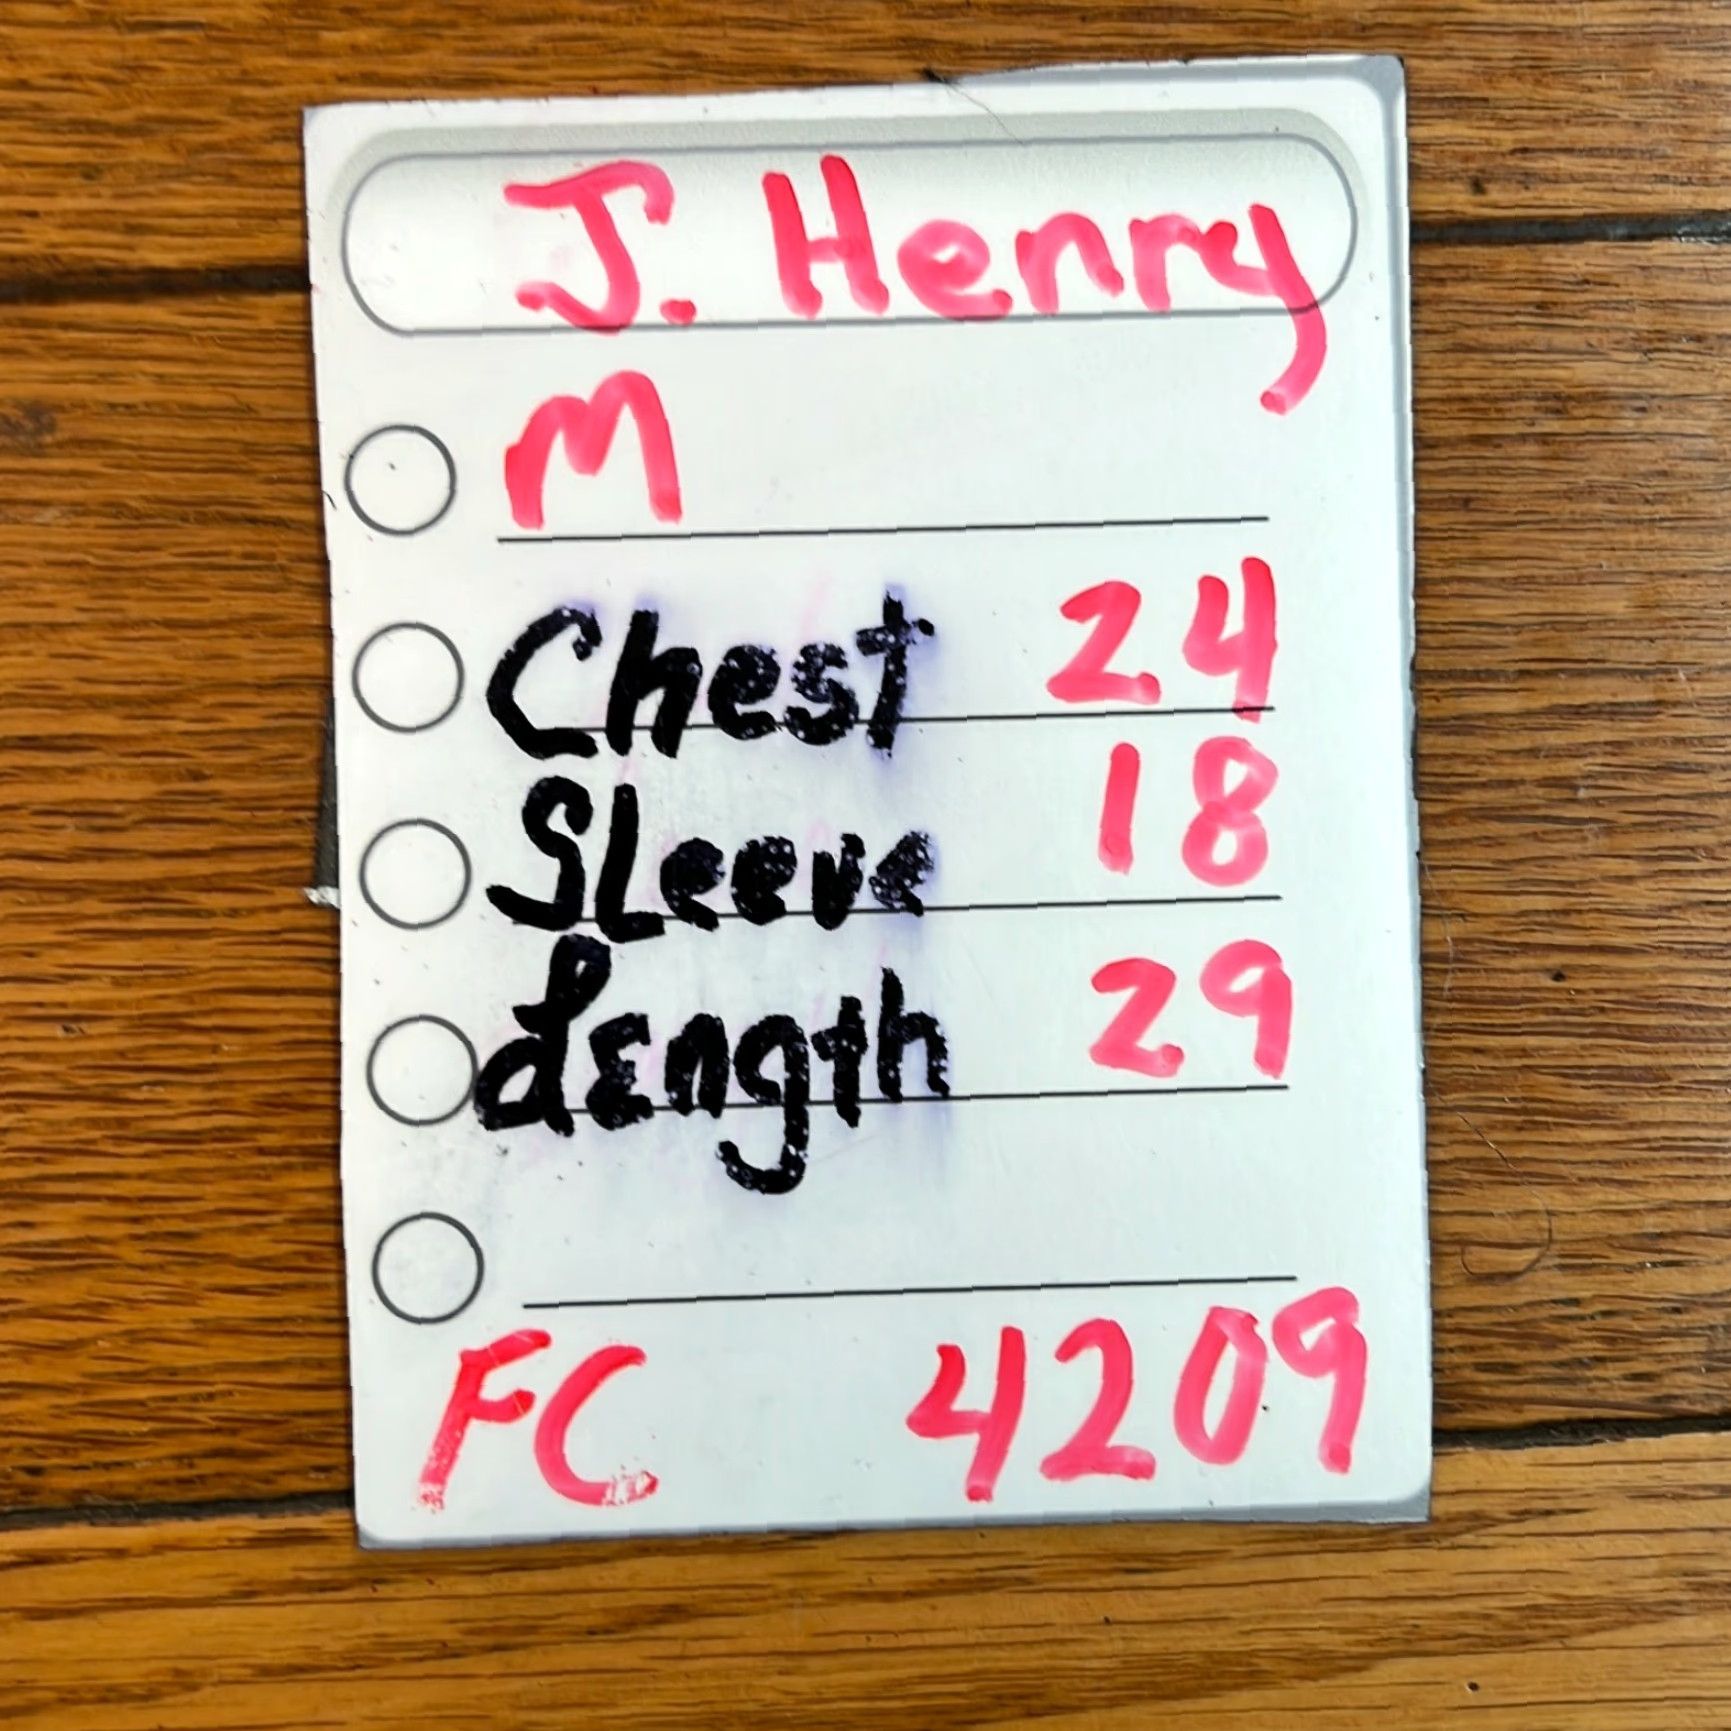 J. Henry
M
Chest 24
SLeeve 18
Length 29
FC 4209